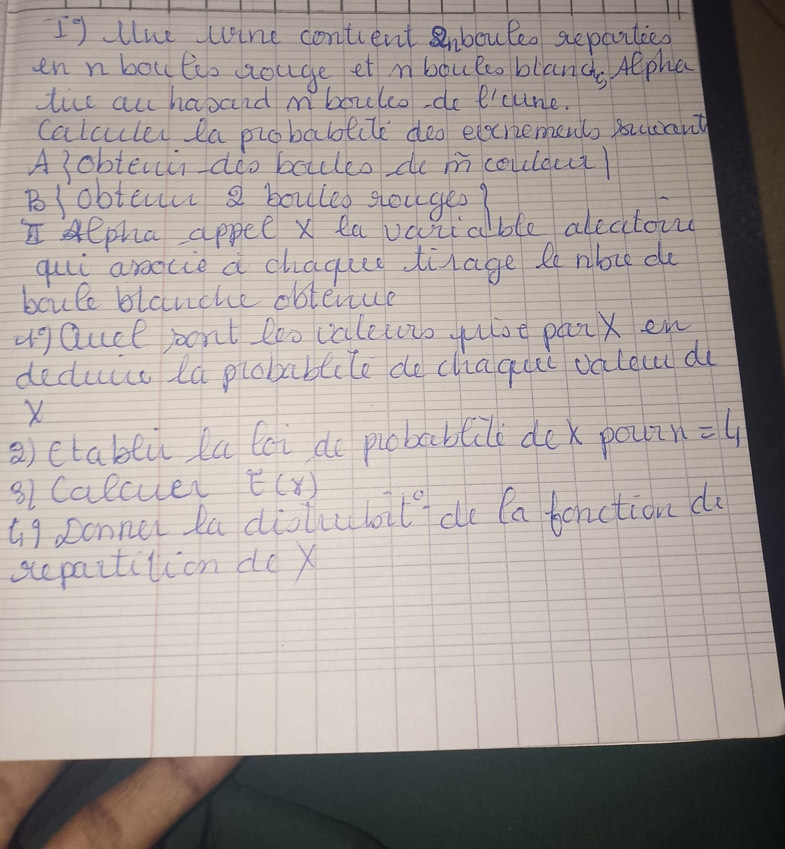 I°) Une urne contient 2n boules reparties
en n boules rouge et n boules blanch, Alpha
tire au hasard n boules de l'urne.
Calculer la probabilité des evenements suivant
A {obtenir des boules de m̃ couleur}
B { obtenir 2 boules rouges}
II Alpha appel X la variable aleatoire
qui associe à chaque tirage le nbre de
boule blanche obtenue
1°) Quel sont les valeurs prise par X en
deduire la probabilité de chaque valeur de
X
2) Etablir la loi de probabilité de X pour n = 4
3) Calcuer E(x)
4°) Donner la distribuit° de la fonction de
repartition de X